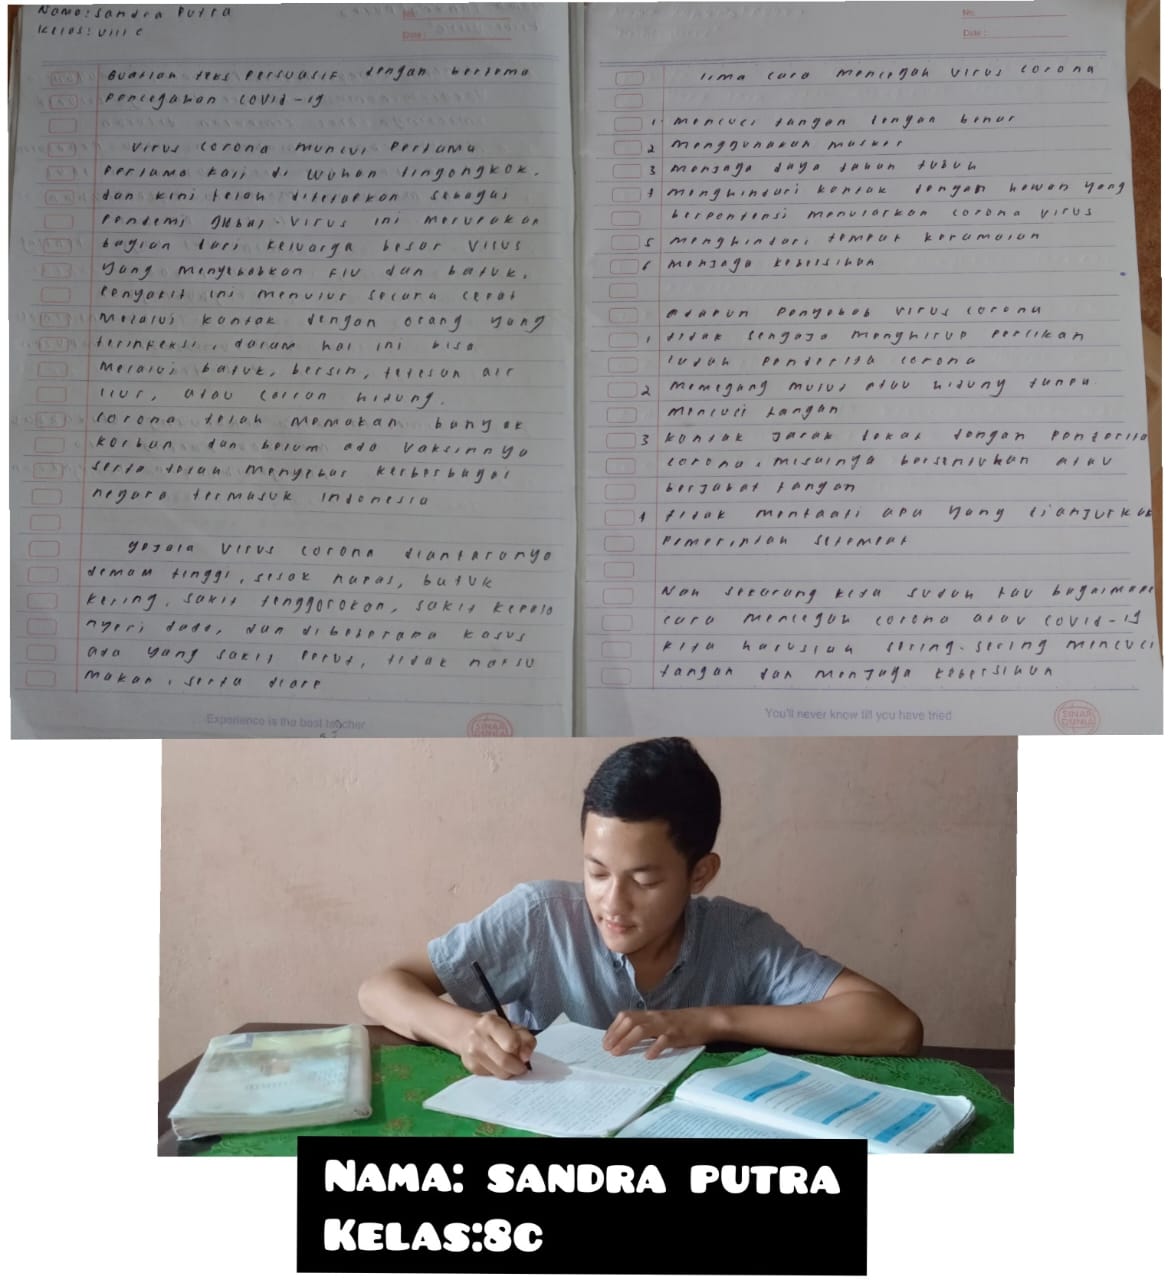 Nama: Sandra Putra
Kelas: VIII C
No.
Date:
Buatlah teks Persuasif dengan bertema
Pencegahan COVID-19
Virus corona muncul Pertama
Pertama kali di Wuhan tingongkok.
dan kini telah ditetapkan sebagai
Pandemi global. Virus ini merupakan
bagian dari keluarga besar Virus
yang menyebabkan Flu dan batuk.
Penyakit ini menular secara cepat
Melalui kontak dengan orang yang
terinfeksi, dalam hal ini bisa
Melalui batuk, bersin, tetesan air
liur, atau cairan hidung.
corona telah memakan banyak
korban dan belum ada vaksinnya
serta telah menyebar kerberbagai
negara termasuk indonesia
gejala Virus corona diantaranya
demam tinggi, sesak napas, batuk
kering, sakit tenggorokan, sakit kepala
nyeri dada, dan dibeberapa kasus
ada yang sakit perut, tidak nafsu
makan, serta diare
Experience is the best teacher
SINAR DUNIA
No.
Date:
lima cara mencegah virus corona
1. mencuci tangan dengan benar
2 menggunakan masker
3 menjaga daya tahan tubuh
4 menghindari kontak dengan hewan yang
berpontensi menularkan corona virus
5 menghindari tempat keramaian
6 menjaga kebersihan
adapun penyebab virus corona
1 tidak sengaja menghirup percikan
ludah penderita corona
2 memegang mulut atau hidung tanpa
mencuci tangan
3 kontak jarak dekat dengan penderita
corona, misalnya bersentuhan atau
berjabat tangan
4 tidak mentaati apa yang dianjurkan
pemerintah setempat
Nah sekarang kita sudah tau bagaimana
cara mencegah corona atau COVID-19
kita haruslah sering-sering mencuci
tangan dan menjaga kebersihan
You'll never know till you have tried
SINAR DUNIA
NAMA: SANDRA PUTRA
KELAS:8C